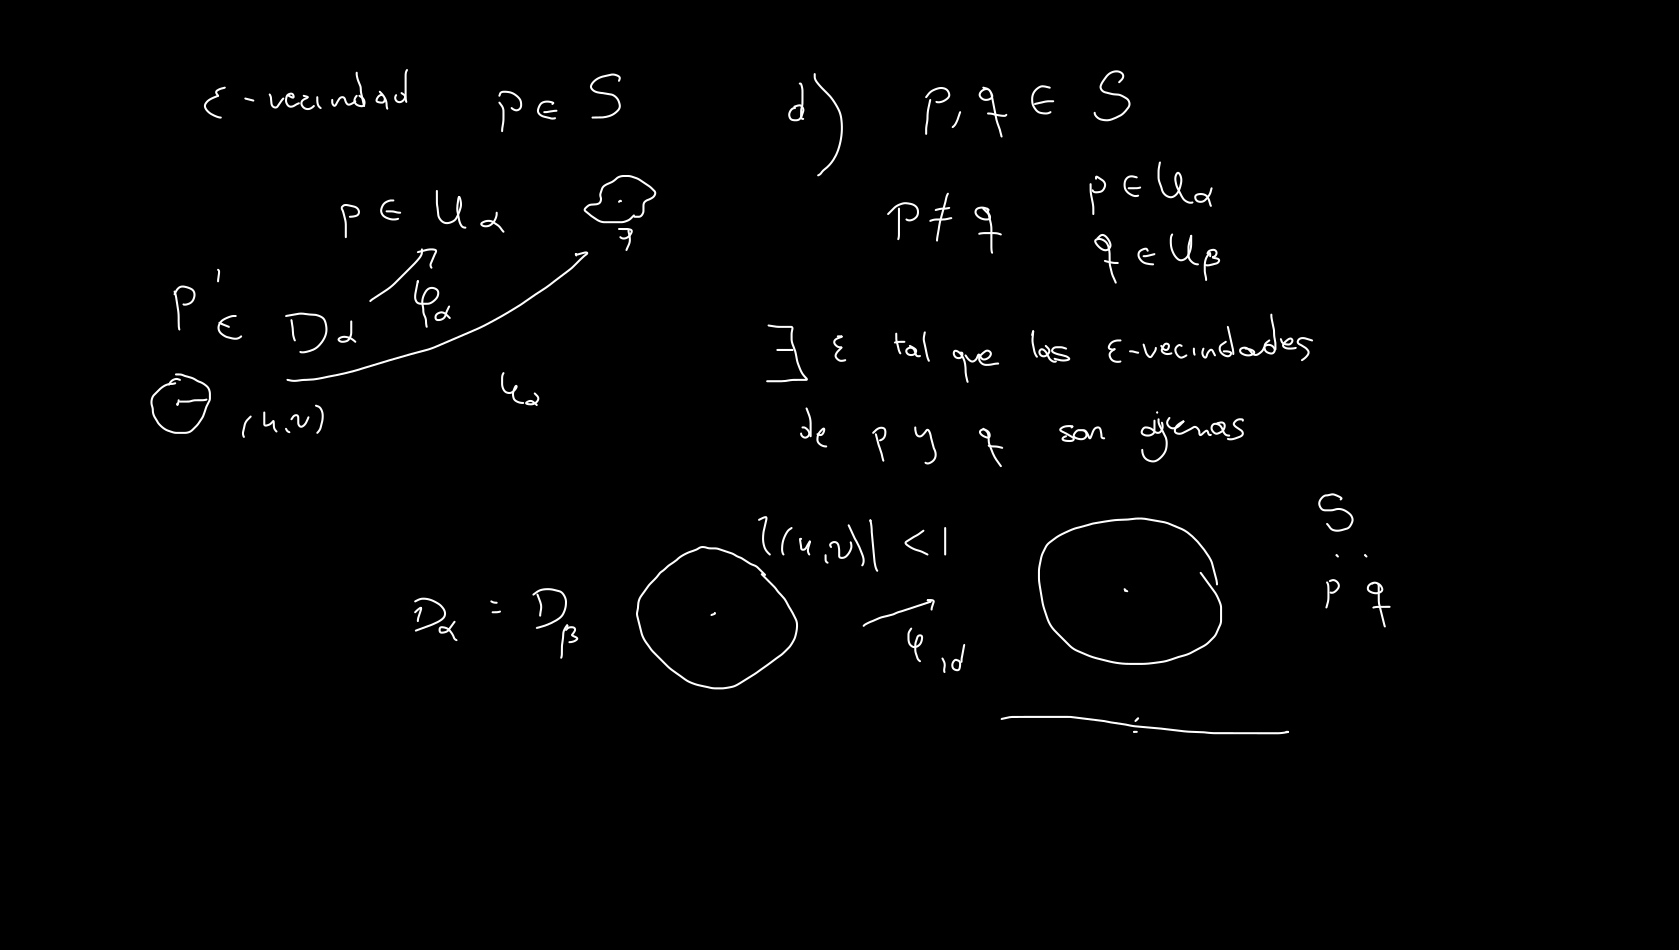 ε-vecindad p ∈ S
p ∈ U_α
P' ∈ D_α
φ_α
(u,v)
φ_α
d) p, q ∈ S
p ≠ q
p ∈ U_α
q ∈ U_β
∃ ε tal que las ε-vecindades
de p y q son ajenas
|(u,v)| < 1
D_α = D_β
φ id
S
p q